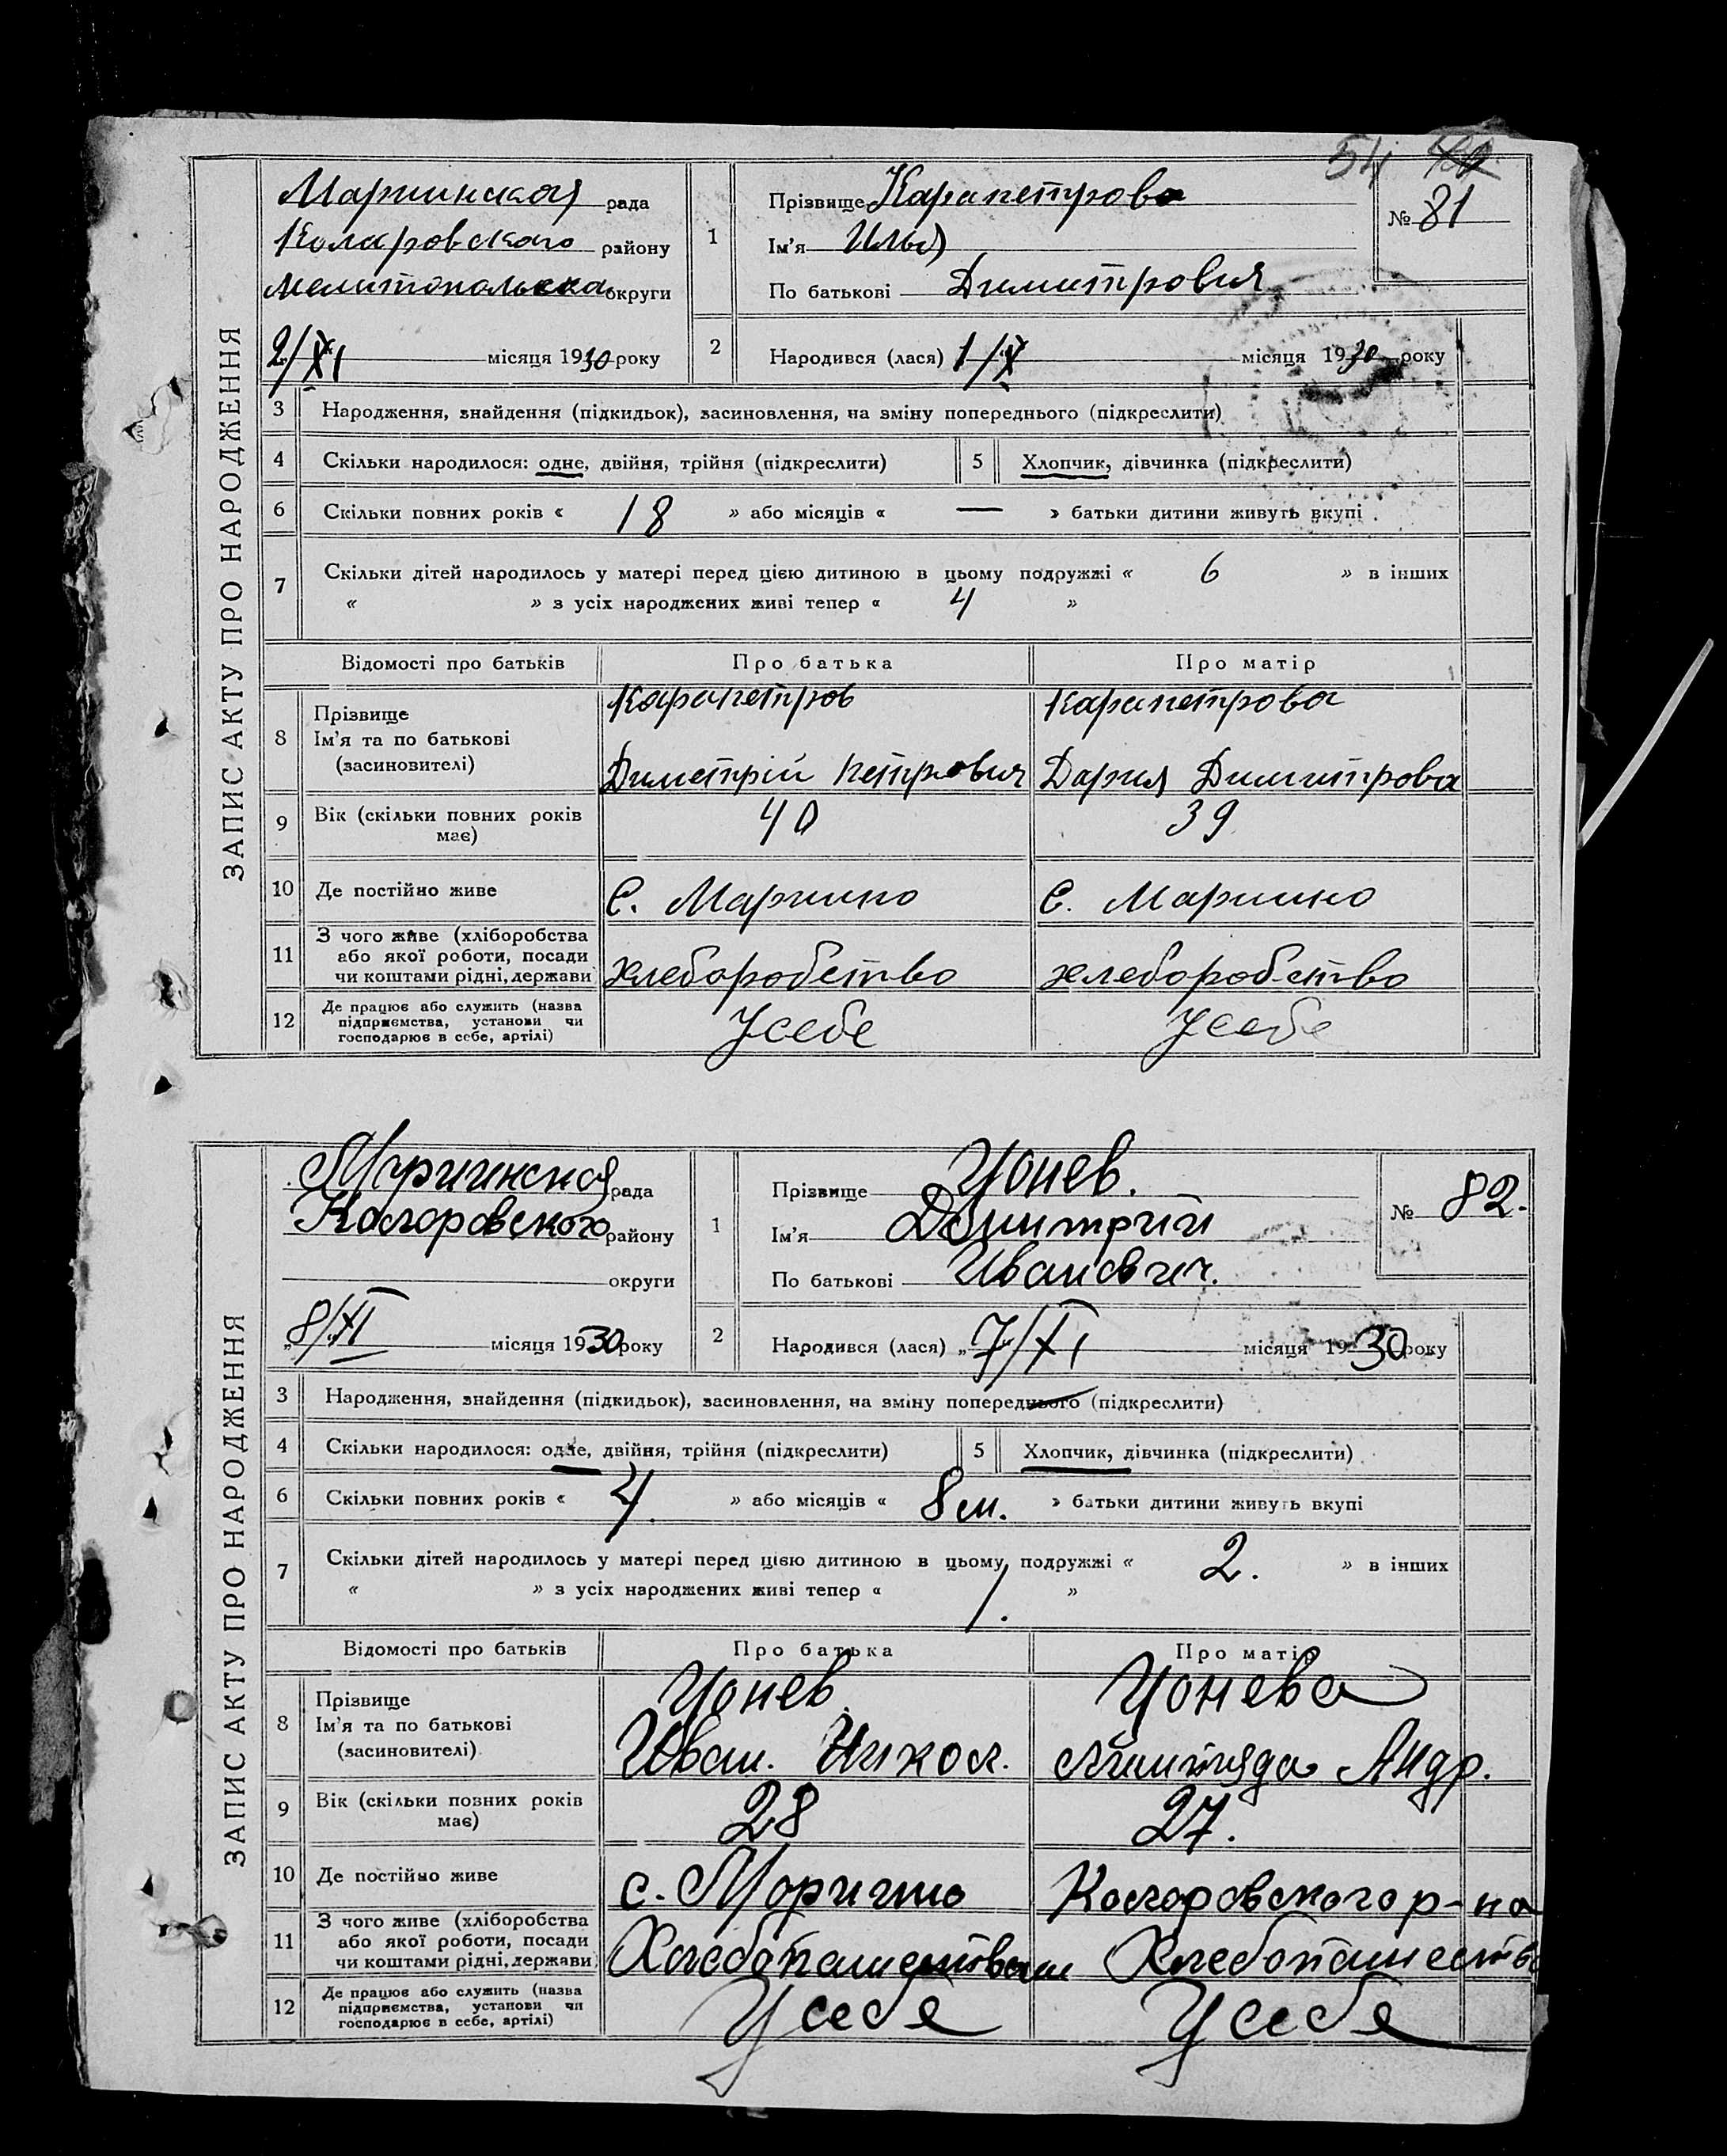 54
ЗАПИС АКТУ ПРО НАРОДЖЕННЯ
Мариинская рада
Коларовского району
Мелитопольска округи
2/XI місяця 1930 року
1
Прізвище Карапетрова
Ім'я Илья
По батькові Димитровия
№ 81
2
Народився (лася) 1/X місяця 1930 року
3 Народження, знайдення (підкидьок), засиновлення, на зміну попереднього (підкреслити)
4 Скільки народилося: одне, двійня, трійня (підкреслити) 5 Хлопчик, дівчинка (підкреслити)
6 Скільки повних років « 18 » або місяців « — » батьки дитини живуть вкупі
7 Скільки дітей народилось у матері перед цією дитиною в цьому подружжі « 6 » в інших
« » з усіх народжених живі тепер « 4 »
Відомості про батьків Про батька Про матір
8 Прізвище Ім'я та по батькові (засиновителі)
Карапетров Карапетрова
Диметрій Петрович Дария Димитрова
9 Вік (скільки повних років має) 40 39
10 Де постійно живе с. Мариино с. Мариино
11 З чого живе (хліборобства або якої роботи, посади чи коштами рідні, держави хлеборобство хлеборобство
12 Де працює або служить (назва підприємства, установи чи господарює в себе, артілі) Усебе Усебе
ЗАПИС АКТУ ПРО НАРОДЖЕННЯ
Мариинская рада
Коларовского району
округи
„8/XI місяця 1930 року
1
Прізвище Цонев.
Ім'я Дмитрий
По батькові Иванович.
№ 82.
2
Народився (лася) „7/XI місяця 1930 року
3 Народження, знайдення (підкидьок), засиновлення, на зміну попереднього (підкреслити)
4 Скільки народилося: одне, двійня, трійня (підкреслити) 5 Хлопчик, дівчинка (підкреслити)
6 Скільки повних років « 4. » або місяців « 8 м. » батьки дитини живуть вкупі
7 Скільки дітей народилось у матері перед цією дитиною в цьому подружжі « 2. » в інших
« » з усіх народжених живі тепер « 1. »
Відомості про батьків Про батька Про матір
8 Прізвище Ім'я та по батькові (засиновителі)
Цонев Цонева
Иван. Никол. Андр.
9 Вік (скільки повних років має) 28 27.
10 Де постійно живе с. Марино Коларовского р-на
11 З чого живе (хліборобства або якої роботи, посади чи коштами рідні, держави Хлебопашеством Хлебопашеств
12 Де працює або служить (назва підприємства, установи чи господарює в себе, артілі) Усебе Усебе